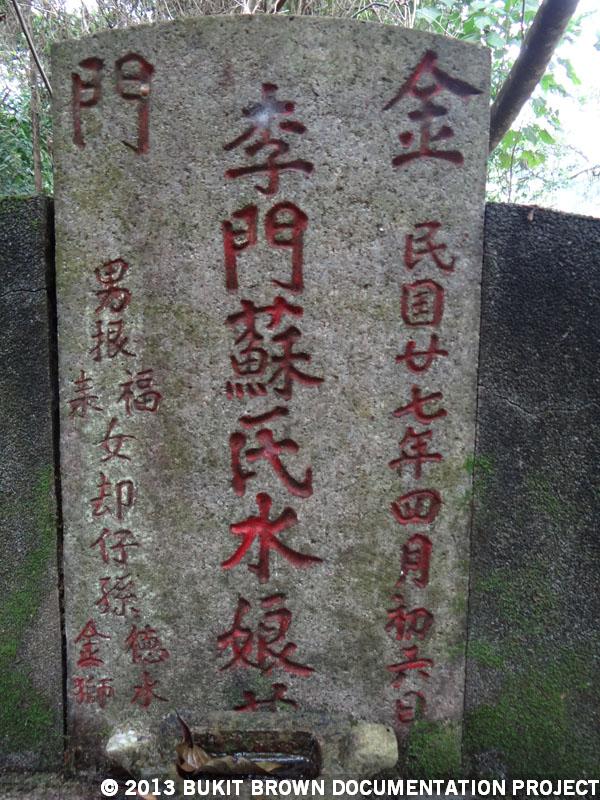 金門
民国廿七年四月初六日
李門蘇氏水娘
男根
福
女却仔孫
德水
金獅
© 2013 BUKIT BROWN DOCUMENTATION PROJECT